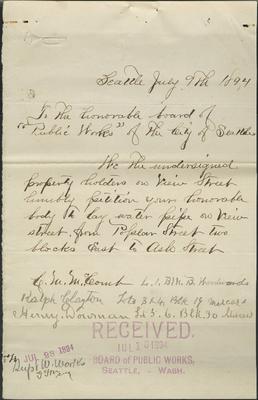 Seattle July 9th 1894
To the honorable board of
"Public Works" of the City of Seattle
We the undersigned
property holders on View Street
humbly petition your honorable
body to lay water pipes on View
street from Poplar Street two
blocks East to Ash Street
C. M. McComb L. 1, Blk B.
Ralph Clayton Lots 3 & 4, Blk 19
Henry Bowman Lts 5. 6. Blk. 30
RECEIVED.
JUL 10 1894
BOARD of PUBLIC WORKS,
SEATTLE, - WASH.
JUL 28 1894
Supt W. Works